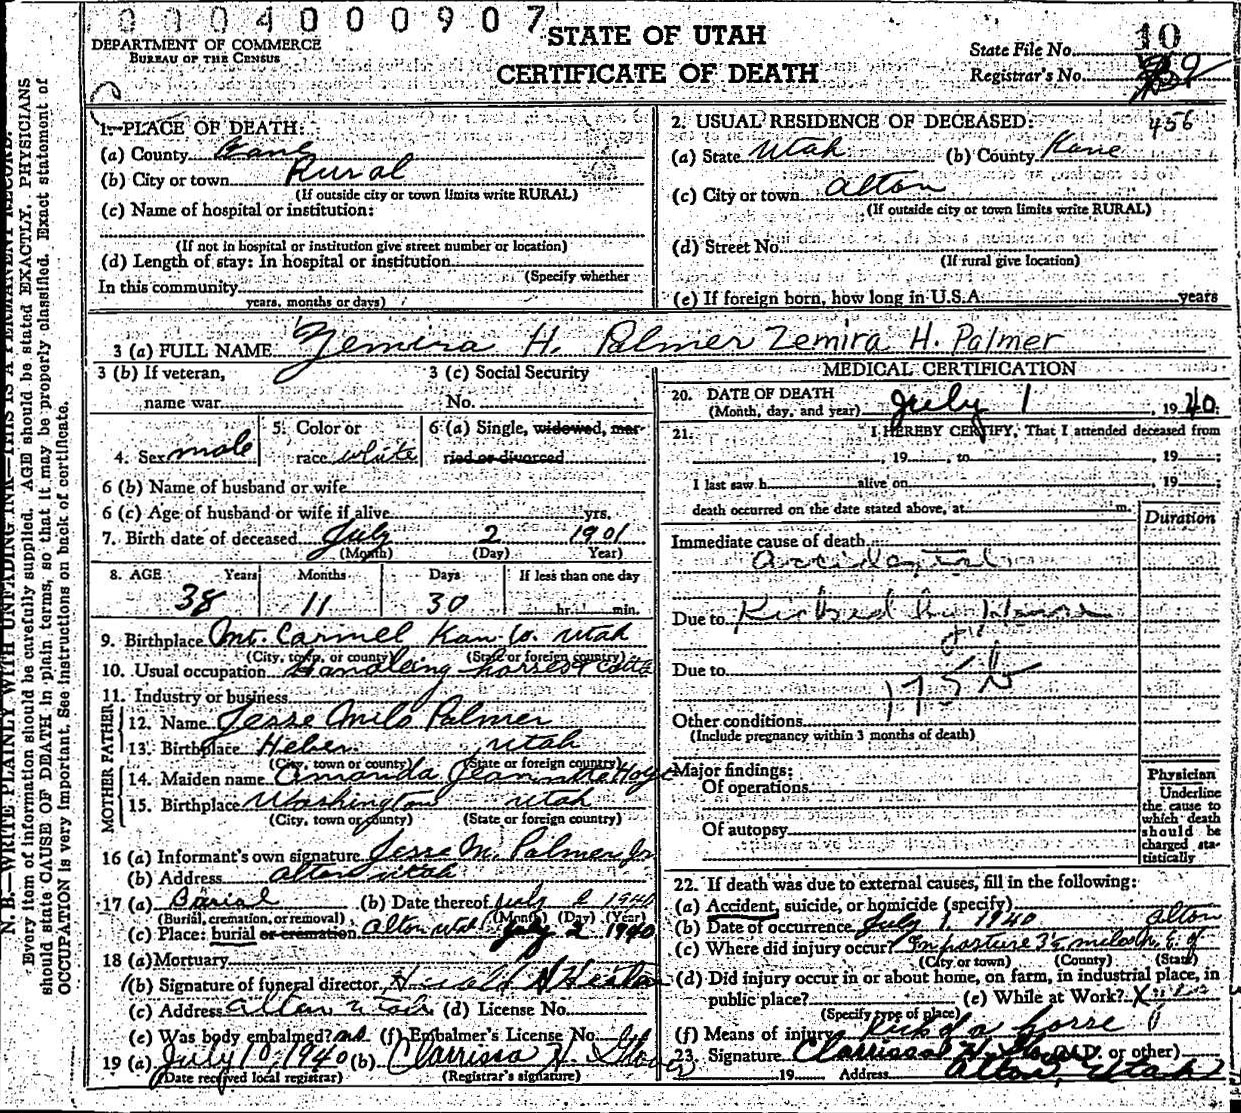 0004000907
STATE OF UTAH
CERTIFICATE OF DEATH
DEPARTMENT OF COMMERCE
BUREAU OF THE CENSUS
State File No. 10
Registrar's No.
N. B.—WRITE PLAINLY WITH UNFADING INK—THIS IS A PERMANENT RECORD.
Every item of information should be carefully supplied. AGE should be stated EXACTLY. PHYSICIANS
should state CAUSE OF DEATH in plain terms, so that it may be properly classified. Exact statement of
OCCUPATION is very important. See instructions on back of certificate.
1. PLACE OF DEATH:
(a) County Kane
(b) City or town Rural
(If outside city or town limits write RURAL)
(c) Name of hospital or institution:
(If not in hospital or institution give street number or location)
(d) Length of stay: In hospital or institution
(Specify whether
In this community
years, months or days)
2. USUAL RESIDENCE OF DECEASED: 456
(a) State Utah (b) County Kane
(c) City or town Alton
(If outside city or town limits write RURAL)
(d) Street No.
(If rural give location)
(e) If foreign born, how long in U.S.A. years
3 (a) FULL NAME Zemira H. Palmer Zemira H. Palmer
3 (b) If veteran, 3 (c) Social Security
name war No.
4. Sex male 5. Color or race white 6 (a) Single, widowed, married or divorced
6 (b) Name of husband or wife
6 (c) Age of husband or wife if alive yrs.
7. Birth date of deceased July 2 1901
(Month) (Day) Year)
8. AGE Years Months Days If less than one day
38 11 30 hr. min.
9. Birthplace Mt. Carmel Kan. Co. Utah
(City, town, or county) (State or foreign country)
10. Usual occupation Handleing horses &
11. Industry or business
FATHER
12. Name Jesse Milo Palmer
13. Birthplace Heber Utah
(City, town or county) (State or foreign country)
MOTHER
14. Maiden name Amanda Jeannette
15. Birthplace Washington Utah
(City, town or county) (State or foreign country)
16 (a) Informant's own signature Jesse M. Palmer Jr
(b) Address Alton Utah
17 (a) Burial (b) Date thereof July 2 1940
(Burial, cremation, or removal) (Month) (Day) (Year)
(c) Place: burial or cremation Alton Utah July 2 1940
18 (a) Mortuary
(b) Signature of funeral director Heaton
(c) Address Alton Utah (d) License No.
(e) Was body embalmed? no (f) Embalmer's License No.
19 (a) July 10, 1940 (b) Clarrissa H. Glover
(Date received local registrar) (Registrar's signature)
MEDICAL CERTIFICATION
20. DATE OF DEATH
(Month, day, and year) July 1, 1940.
21. I HEREBY CERTIFY, That I attended deceased from
, 19 , to , 19 ;
I last saw h alive on , 19 ;
death occurred on the date stated above, at m.
Duration
Immediate cause of death
Accidental
Due to Kicked by Horse
Due to
175b
Other conditions
(Include pregnancy within 3 months of death)
Major findings:
Of operations
Of autopsy
Physician
Underline
the cause to
which death
should be
charged sta-
tistically
22. If death was due to external causes, fill in the following:
(a) Accident, suicide, or homicide (specify)
(b) Date of occurrence July 1, 1940
(c) Where did injury occur? In pasture 3½ miles N. E. of Alton
(City or town) (County) (State)
(d) Did injury occur in or about home, on farm, in industrial place, in
public place? (e) While at Work?
(Specify type of place)
(f) Means of injury Kick of a horse
23. Signature Clarrissa H. Glover (M.D. or other)
19 Address Alton, Utah